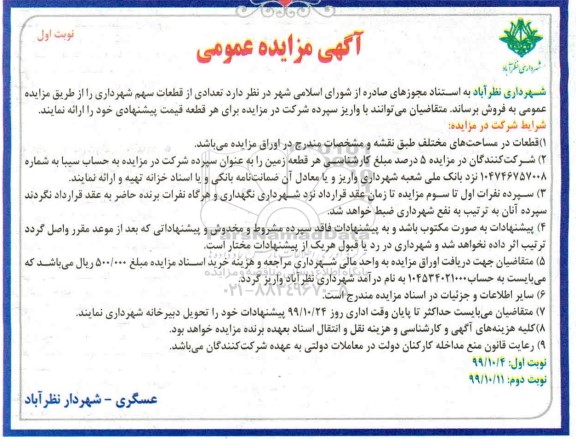 نوبت اول
آگهی مزایده عمومی
شهرداری نظرآباد
شهرداری نظرآباد به استناد مجوزهای صادره از شورای اسلامی شهر در نظر دارد تعدادی از قطعات سهم شهرداری را از طریق مزایده
عمومی به فروش برساند. متقاضیان می‌توانند با واریز سپرده شرکت در مزایده برای هر قطعه قیمت پیشنهادی خود را ارائه نمایند.
شرایط شرکت در مزایده:
۱)قطعات در مساحت‌های مختلف طبق نقشه و مشخصات مندرج در اوراق مزایده می‌باشد.
۲) شرکت‌کنندگان در مزایده ۵ درصد مبلغ کارشناسی هر قطعه زمین را به عنوان سپرده شرکت در مزایده به حساب سیبا به شماره
۰۱۰۴۷۴۶۷۵۷۰۰۸ نزد بانک ملی شعبه شهرداری واریز و یا معادل آن ضمانت‌نامه بانکی و یا اسناد خزانه تهیه و ارائه نمایند.
۳) سپرده نفرات اول تا سوم مزایده تا زمان عقد قرارداد نزد شهرداری نگهداری و هرگاه نفرات برنده حاضر به عقد قرارداد نگردند
سپرده آنان به ترتیب به نفع شهرداری ضبط خواهد شد.
۴) پیشنهادات به صورت مکتوب باشد و به پیشنهادات فاقد سپرده مشروط و مخدوش و پیشنهاداتی که بعد از موعد مقرر واصل گردد
ترتیب اثر داده نخواهد شد و شهرداری در رد یا قبول هریک از پیشنهادات مختار است.
۵) متقاضیان جهت دریافت اوراق مزایده به واحد مالی شهرداری مراجعه و هزینه خرید اسناد مزایده مبلغ ۵۰۰/۰۰۰ ریال می‌باشد که
می‌بایست به حساب۰۱۰۴۵۳۴۰۲۱۰۰۰ به نام درآمد شهرداری نظرآباد واریز گردد.
۶) سایر اطلاعات و جزئیات در اسناد مزایده مندرج است.
۷) متقاضیان می‌بایست حداکثر تا پایان وقت اداری روز ۹۹/۱۰/۲۴ پیشنهادات خود را تحویل دبیرخانه شهرداری نمایند.
۸)کلیه هزینه‌های آگهی و کارشناسی و هزینه نقل و انتقال اسناد بعهده برنده مزایده خواهد بود.
۹) رعایت قانون منع مداخله کارکنان دولت در معاملات دولتی به عهده شرکت‌کنندگان می‌باشد.
نوبت اول: ۹۹/۱۰/۴
نوبت دوم: ۹۹/۱۰/۱۱
عسگری – شهردار نظرآباد